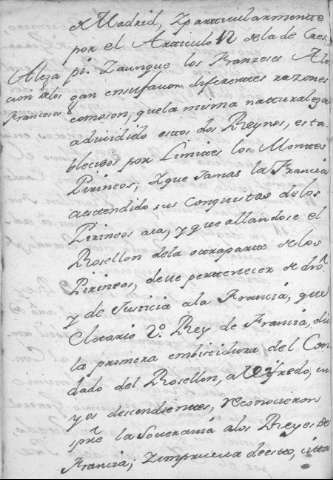 de Madrid, Y particularmente
por el Articulo 12 dela de Cres
pi. Y aunque los Franceses Ale
gan ensufavor diferentes razones
como son, que la misma naturaleza
adividido estos dos Reynos, esta
blecidos por Limites los Montes
Pirineos, Y que Jamas la Francia
aestendido sus Conquistas delos
Pirineos aca, y que allandose el
Rosellon dela otra parte delos
Pirineos, deve pertenecer de dro
y de Justicia ala Francia, que
Clotario 2º Rey de Francia, dio
la primera embestidura del Con
dado del Rosellon, a
y sus descendientes, reconocieron
spre la Soverania alos Reyes de
Francia; Y en prueva desto, citan
Alega
cion delos
Franceses